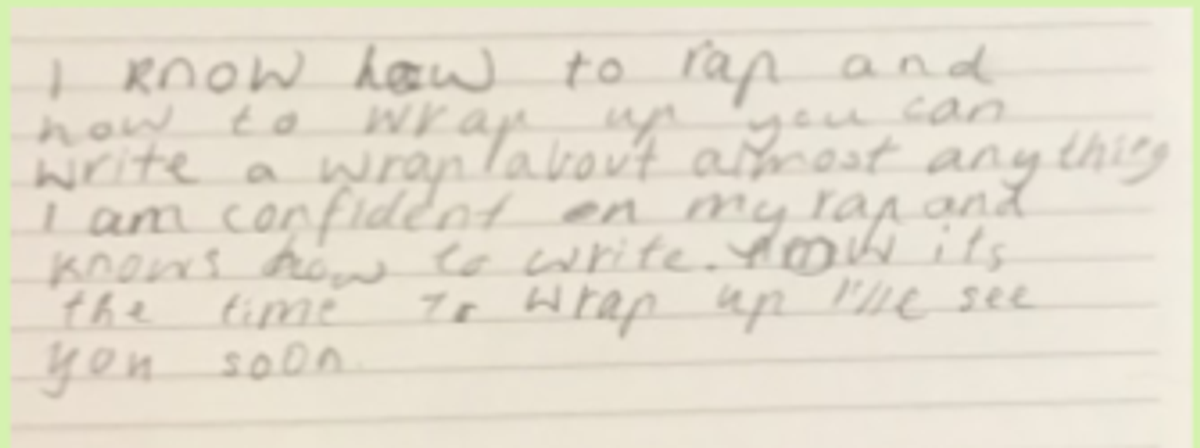 I know how to rap and
how to wrap up you can
write a wrap about almost anything
I am confident on my rap and
knows how to write. now its
the time To wrap up I'll see
you soon.